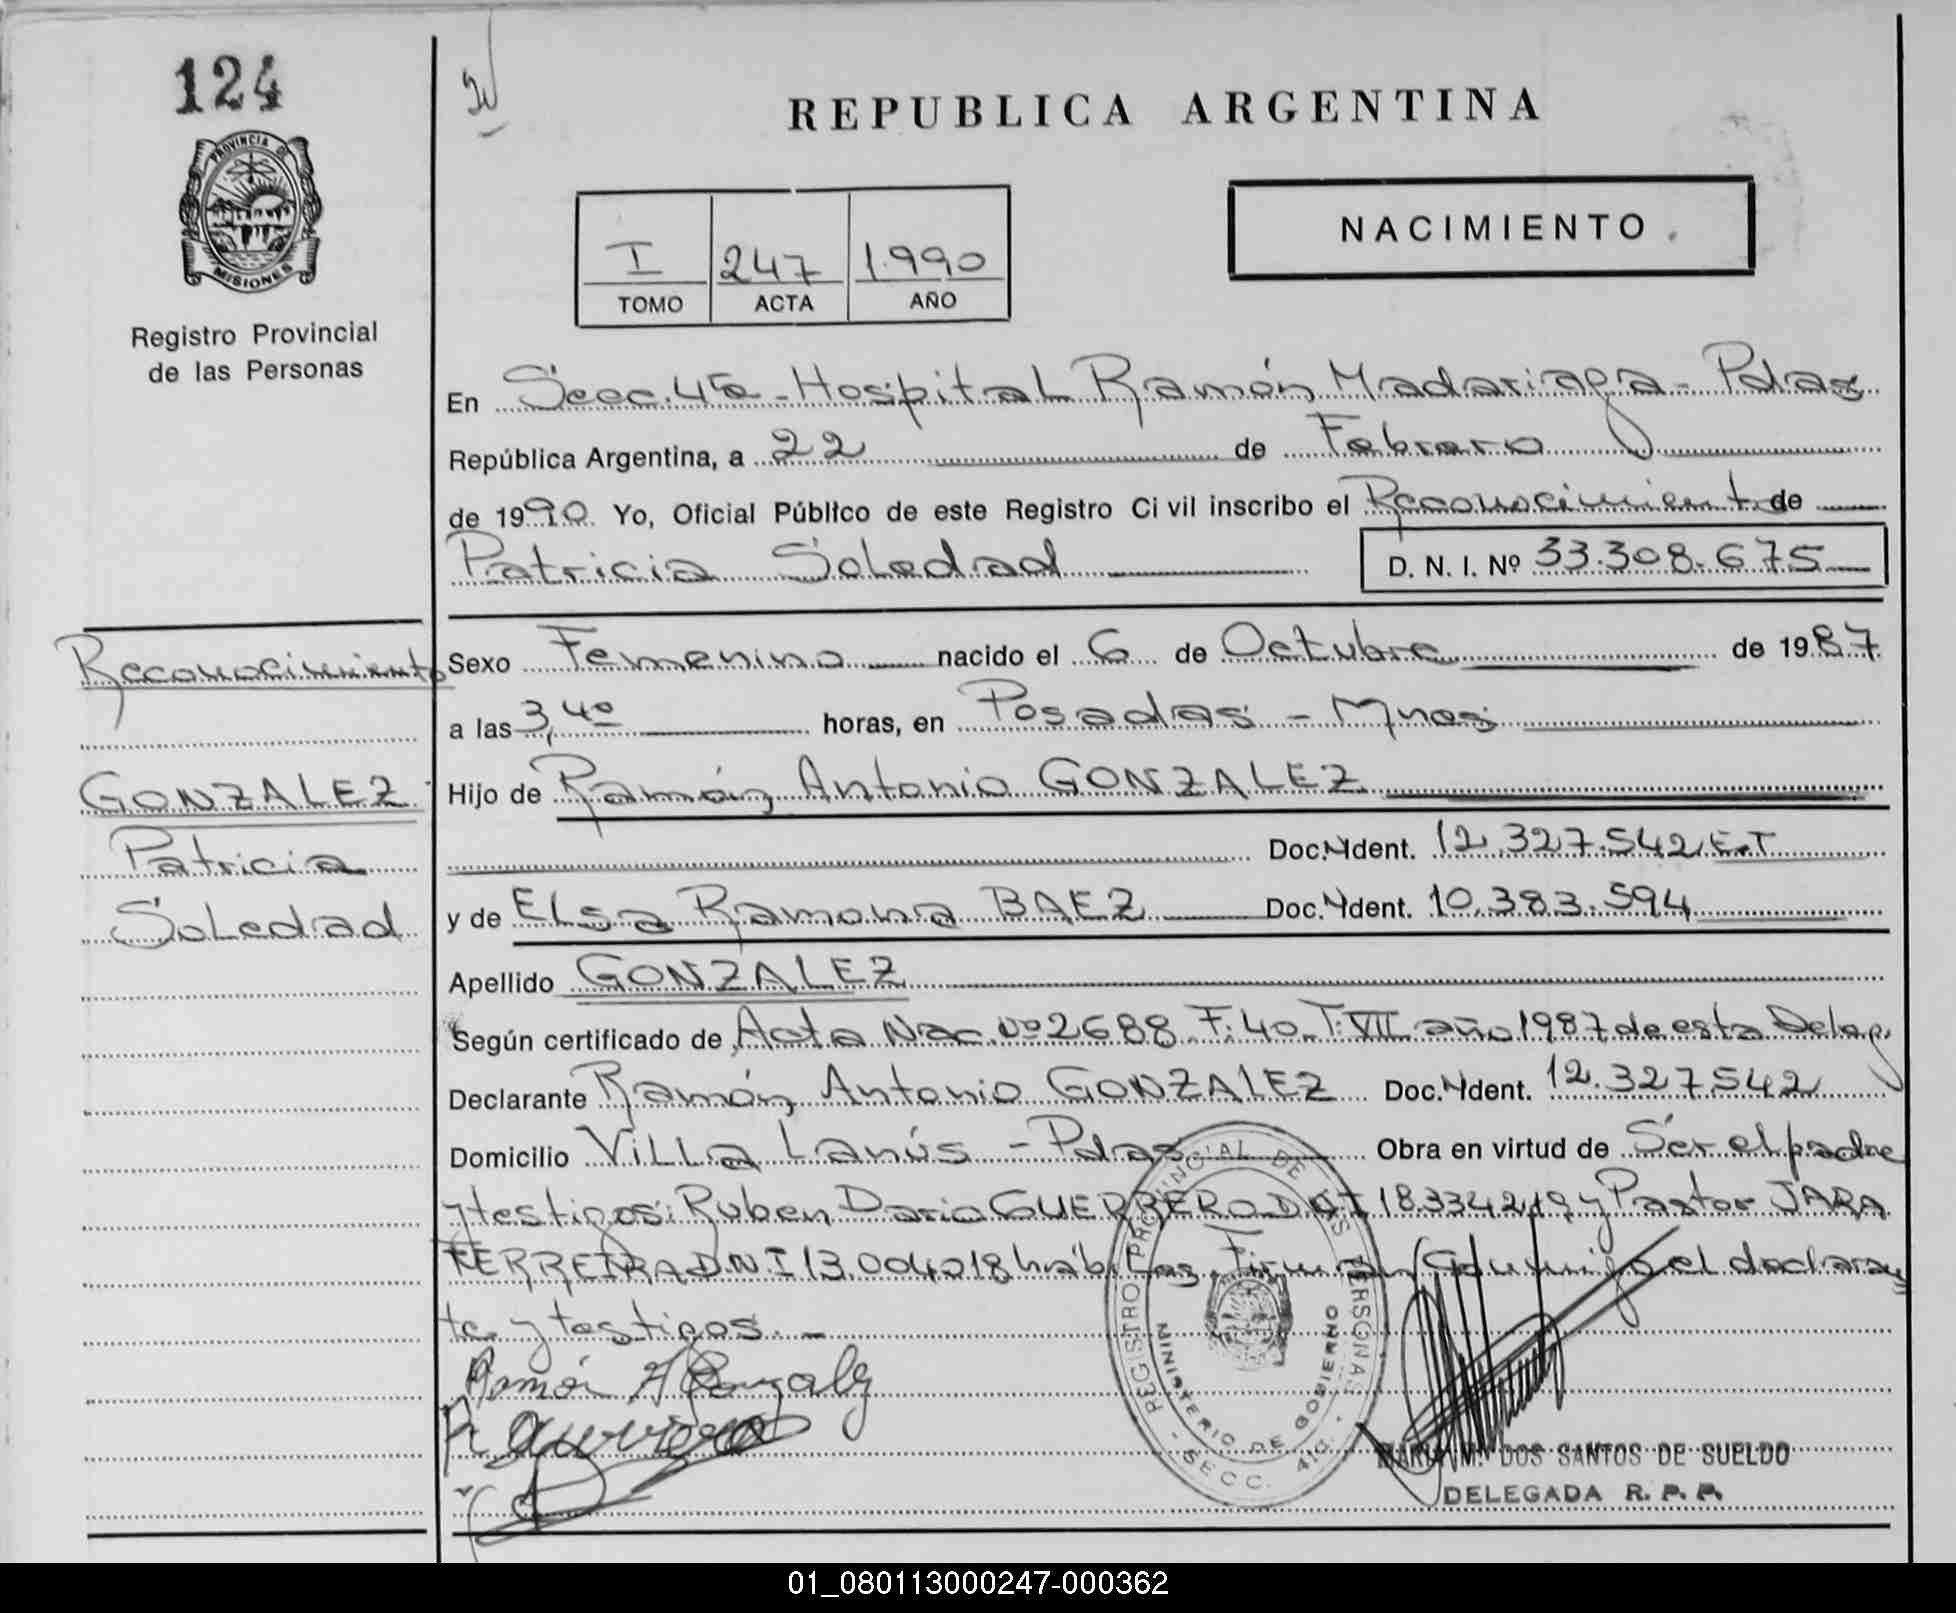 124
PROVINCIA DE
MISIONES
Registro Provincial
de las Personas
REPUBLICA ARGENTINA
NACIMIENTO
I 247 1.990
TOMO ACTA AÑO
En Secc. 4ta - Hospital Ramón Madariaga - Pdas
República Argentina, a 22 de Febrero
de 1990. Yo, Oficial Público de este Registro Ci vil inscribo el Reconocimiento de
Patricia Soledad D. N. I. Nº 33.308.675
Reconocimiento
GONZALEZ
Patricia
Soledad
Sexo Femenino nacido el 6 de Octubre de 1987
a las 3,40 horas, en Posadas - Mnes
Hijo de Ramón Antonio GONZALEZ
Doc. Ident. 12.327.542 E.T
y de Elsa Ramona BAEZ Doc. Ident. 10.383.594
Apellido GONZALEZ
Según certificado de Acta Nac. Nº 2688 F: 40 T: VII año 1987 de esta Deleg.
Declarante Ramón Antonio GONZALEZ Doc. Ident. 12.327.542
Domicilio Villa Lanús - Pdas Obra en virtud de Ser el padre
y testigos: Ruben Dario GUERRERO DNI 18.334.219 y Pastor JARA
FERREIRA D.N.I 13.004.018 hábiles. Firman conmigo el declaran
te y testigos. -
Ramón A Gonzalez
R Guerrero
REGISTRO PROVINCIAL DE LAS PERSONAS
MINISTERIO DE GOBIERNO
- SECC. 4ta. -
MARIA M. DOS SANTOS DE SUELDO
DELEGADA R. P. P.
01_080113000247-000362